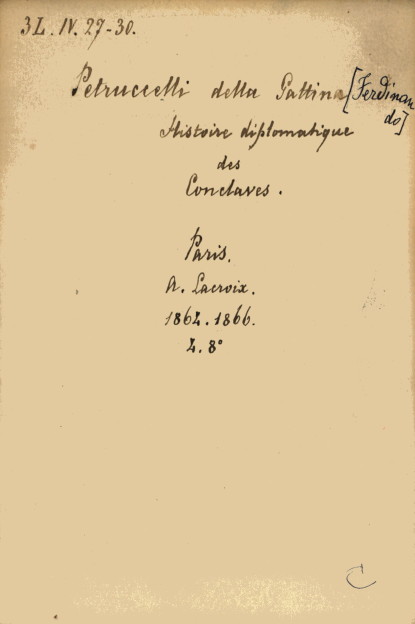 3L. IV. 27-30.
Petruccelli della Gattina [Ferdinan
do]
Histoire diplomatique
des
Conclaves.
Paris.
A. Lacroix.
1864. 1866.
4. 8°
C